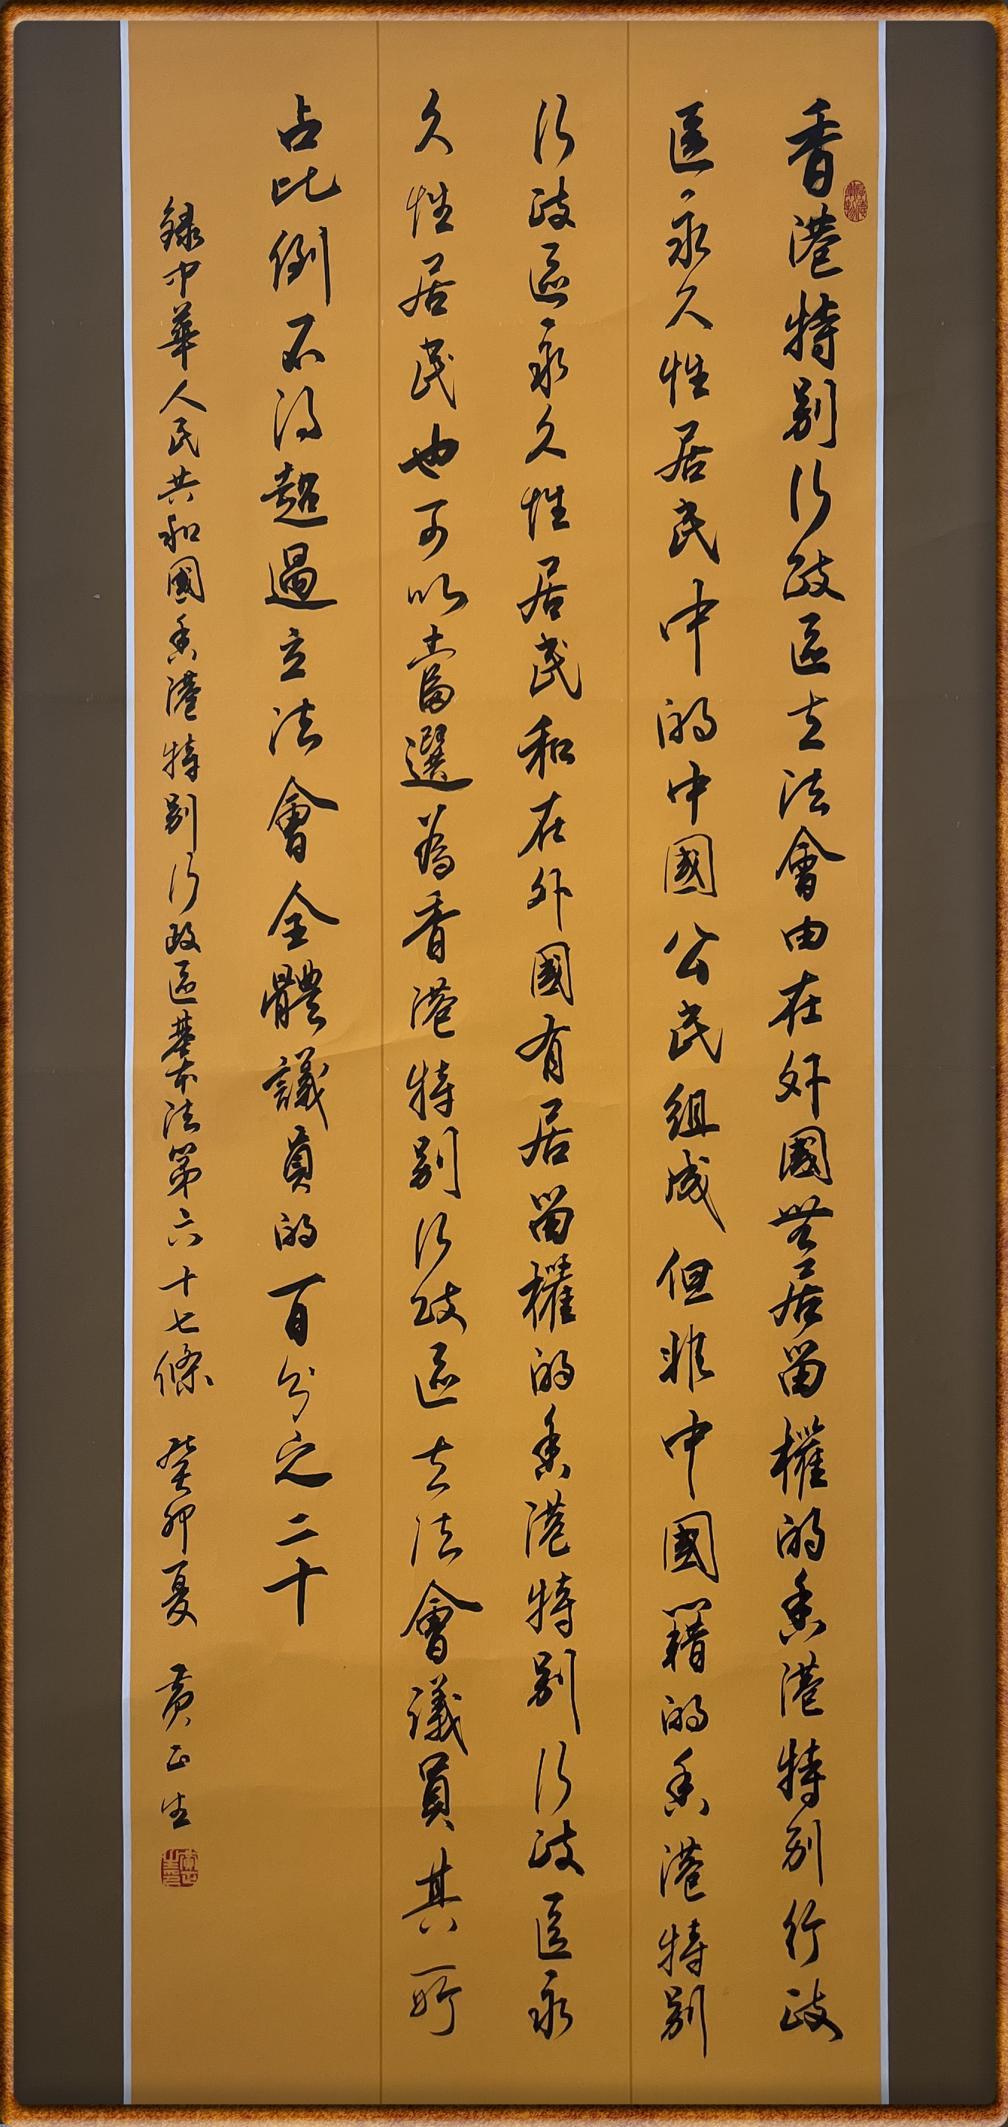 香港特别行政區立法會由在外國無居留權的香港特别行政
區永久性居民中的中國公民組成但非中國籍的香港特别
行政區永久性居民和在外國有居留權的香港特别行政區永
久性居民也可以當選為香港特别行政區立法會議員其所
占比例不得超過立法會全體議員的百分之二十
錄中華人民共和國香港特别行政區基本法第六十七條 癸卯夏 黄正生